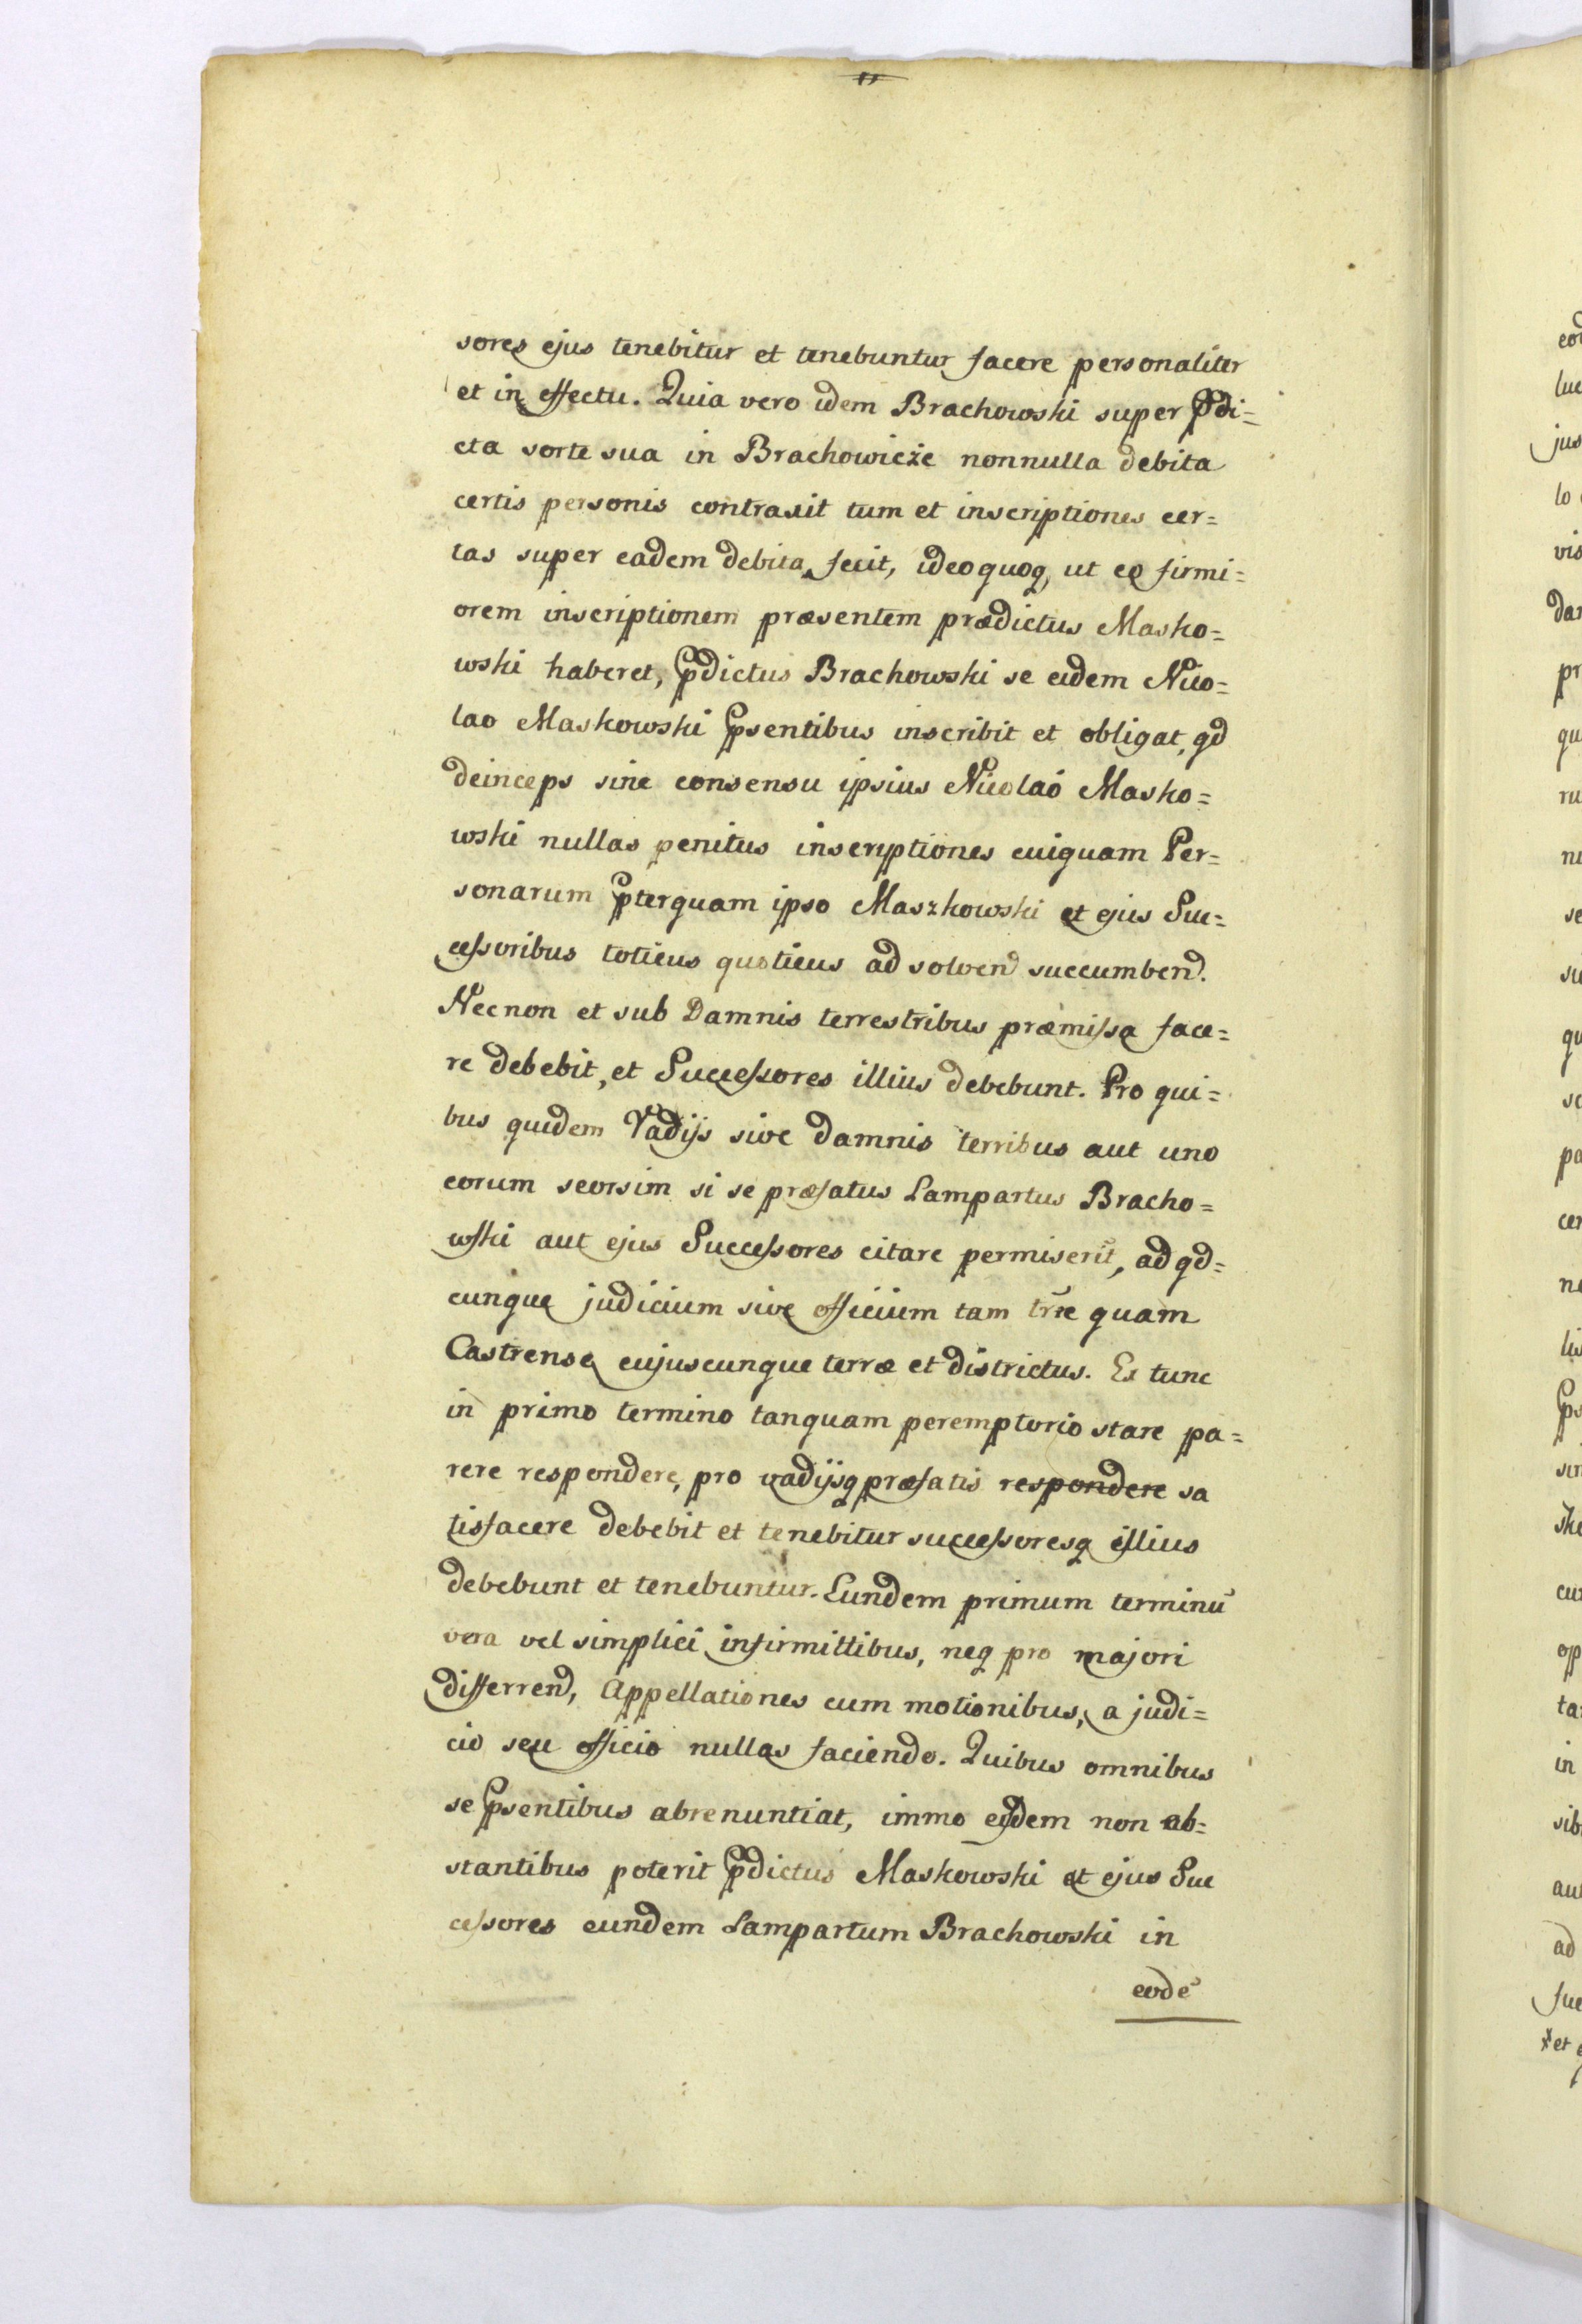 sores ejus tenebitur et tenebuntur facere personaliter
et in effectu. Quia vero idem Brachowski super pdi=
cta sorte sua in Brachowicze nonnulla debita
certis personis contraxit tum et inscriptiones cer=
tas super eadem debita fecit, ideo quoq, ut eo firmi=
orem inscriptionem præsentem prædictus Masko=
wski haberet, pdictus Brachowski se eidem Nico=
lao Maskowski psentibus inscribit et obligat, qd
deinceps sine consensu ipsius Nicolao Masko=
wski nullas penitus inscriptiones cuiquam Per=
sonarum pterquam ipso Maszkowski et ejus Suc=
cessoribus toticus quoticus ad solvend succumbend.
Necnon et sub Damnis terrestribus præmissa face=
re debebit, et Successores illius debebunt. Pro qui=
bus quidem Vadijs sive damnis terribus aut uno
eorum seorsim si se præfatus Lampartus Bracho=
wski aut ejus Successores citare permiserīt, ad qd=
cunque judicium sive officium tam trre quam
Castrense cujuscunque terræ et districtus. Ex tunc
in primo termino tanquam peremptorio stare pa=
rere respondere, pro vadijsq præfatis respondere sa
tisfacere debebit et tenebitur successoresq illius
debebunt et tenebuntur. Eundem primum terminū
vera vel simplici infirmittibus, neq pro majori
differrend, Appellationes cum motionibus, a judi=
cio seu officio nullas faciendo. Quibus omnibus
se psentibus abrenuntiat, immo eisdem non ob=
stantibus poterit pdictus Maskowski et ejus Suc
cessores eundem Lampartum Brachowski in
eodē